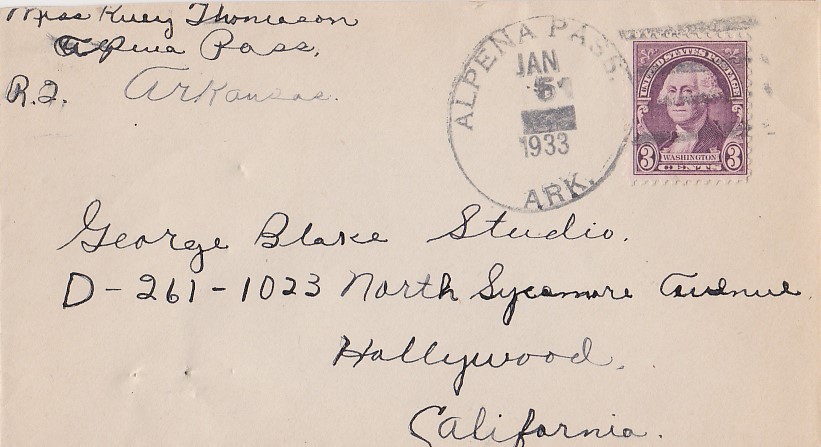 Miss Ruey Thomason
Alpena Pass,
R.2. Arkansas.
ALPENA PASS.
JAN
5
1933
ARK.
UNITED STATES POSTAGE
3 WASHINGTON 3
George Blake Studio.
D-261-1023 North Sycamore Avenue
Hollywood,
California.